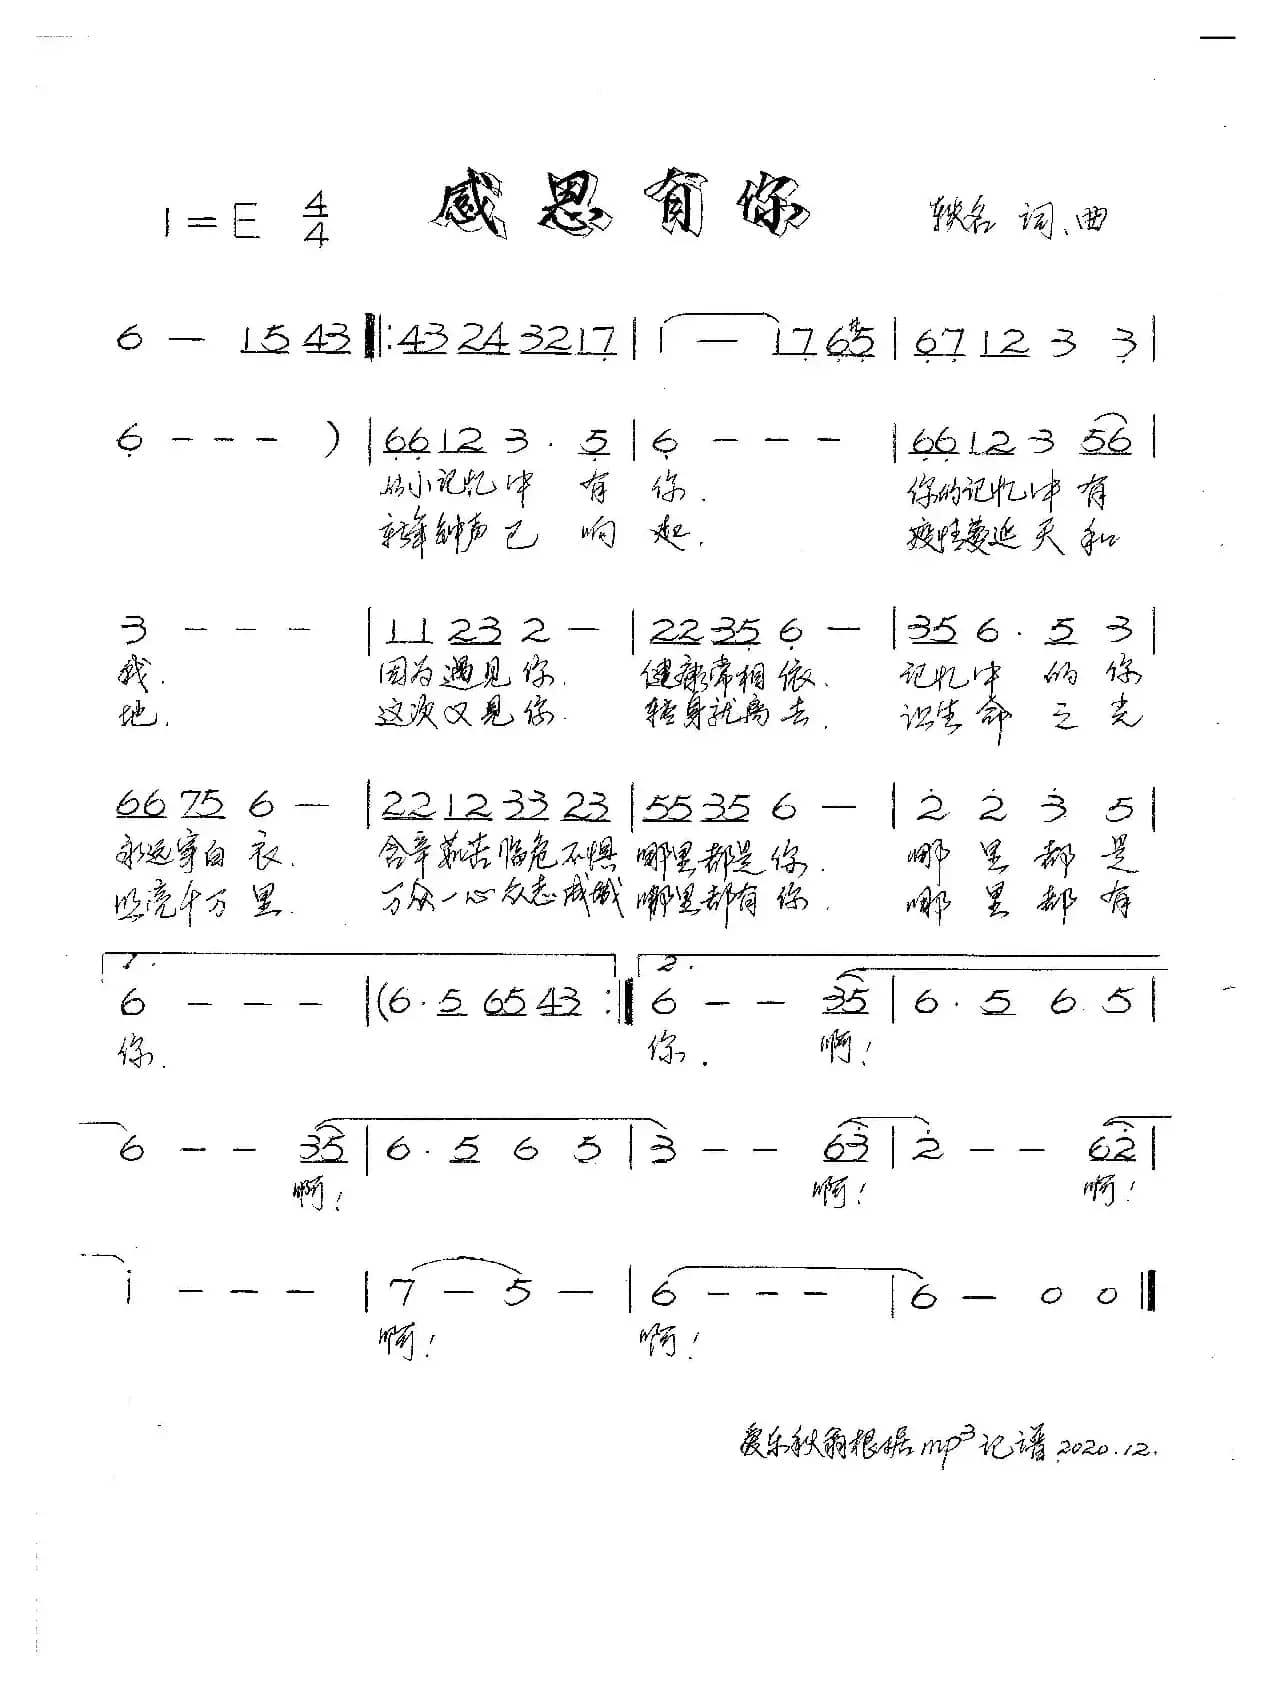 感恩有你
1=E 4/4
轶名 词、曲
6 — 15 43 ‖: 43 24 3217 | 1 — 17 6#5 | 67 12 3 3 |
6 - - - ) | 6612 3 . 5 | 6 - - - | 6612 3 56 |
从小记忆中 有 你. 你的记忆中 有
新年钟声已 响 起. 疫情蔓延天 和
3 - - - | 11 23 2 — | 2235 6 — | 35 6 . 5 3 |
我. 因为遇见你. 健康常相依. 记忆中 的 你
地. 这次又见你. 转身就离去. 让生命 之 光
66 75 6 — | 22 12 33 23 | 5535 6 — | 2 2 3 5 |
永远穿白衣. 含辛茹苦临危不惧 哪里都是你. 哪 里 都 是
照亮千万里. 万众一心众志成城 哪里都有你. 哪 里 都 有
1. 2.
6 - - - | (6 . 5 65 43 :‖ 6 - - 35 | 6 . 5 6 5 |
你. 你. 啊!
6 - - 35 | 6 . 5 6 5 | 3 - - 63 | 2 - - 62 |
啊! 啊! 啊!
1 - - - | 7 — 5 — | 6 - - - | 6 — 0 0 ‖
啊! 啊!
爱乐秋翁根据mp3记谱 2020.12.